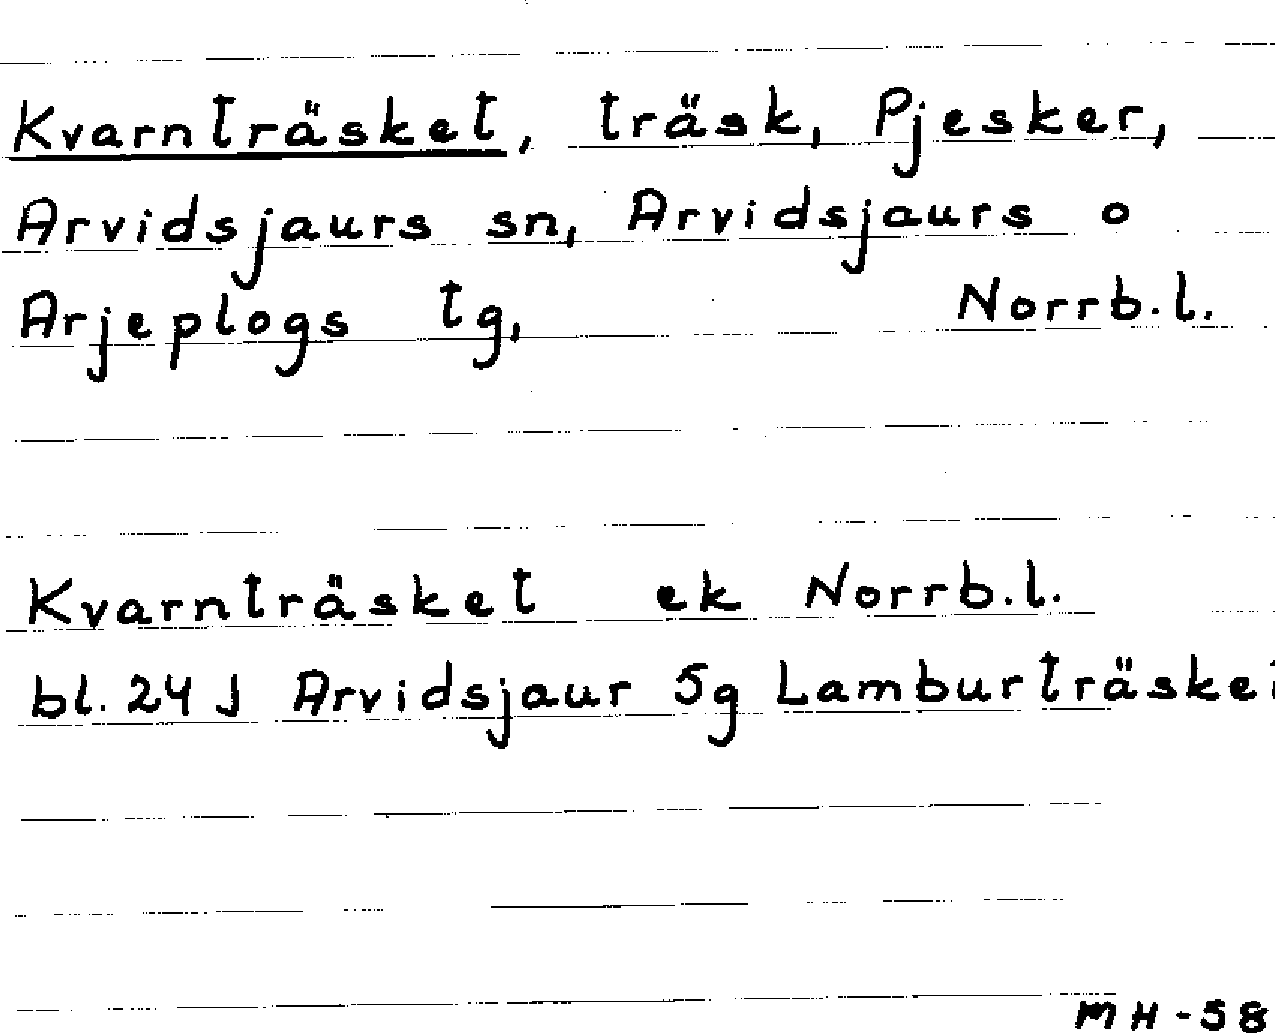 Kvarnträsket, träsk, Pjesker,
Arvidsjaurs sn, Arvidsjaurs o
Arjeplogs tg, Norrb.l.
Kvarnträsket ek Norrb.l.
bl. 24 J Arvidsjaur 5g Lamburträsket
MH-58